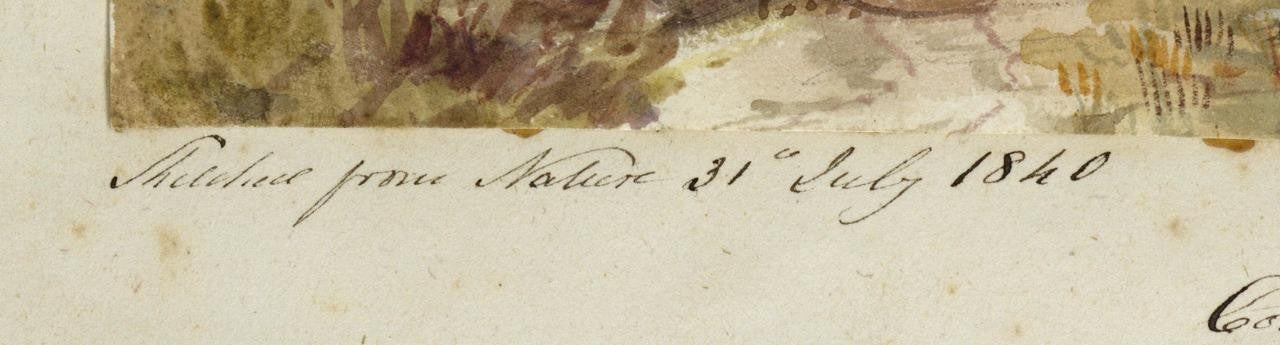 Sketched from Nature 31º July 1840
Co